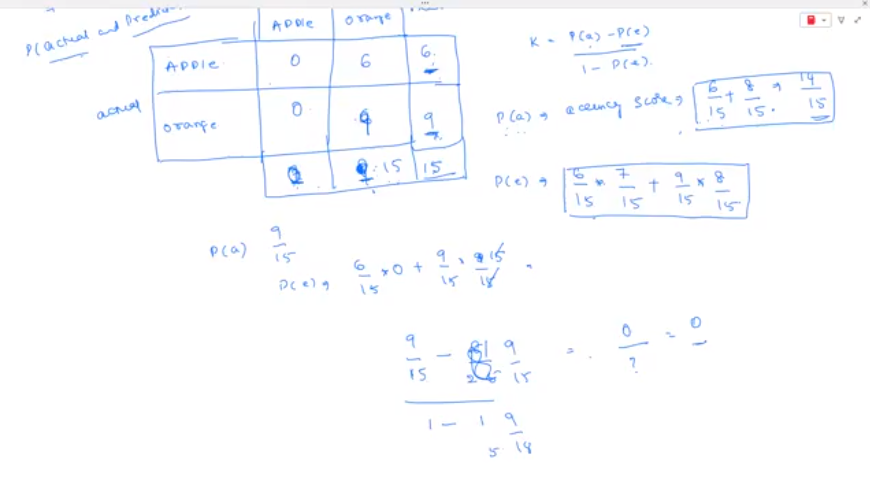 P(actual and Predicted
APPle orange
APPle 0 6 6
actual
orange 0 9 9
15 15
K = P(a) - P(e)
1 - P(e).
P(a) → accuracy score → 6/15 + 8/15 → 14/15
P(e) → 6/15 * 7/15 + 9/15 * 8/15
P(a) 9/15
P(e) → 6/15 * 0 + 9/15 * 15/15 =
9/15 - 9/15 = 0/? = 0
1 - 9/15